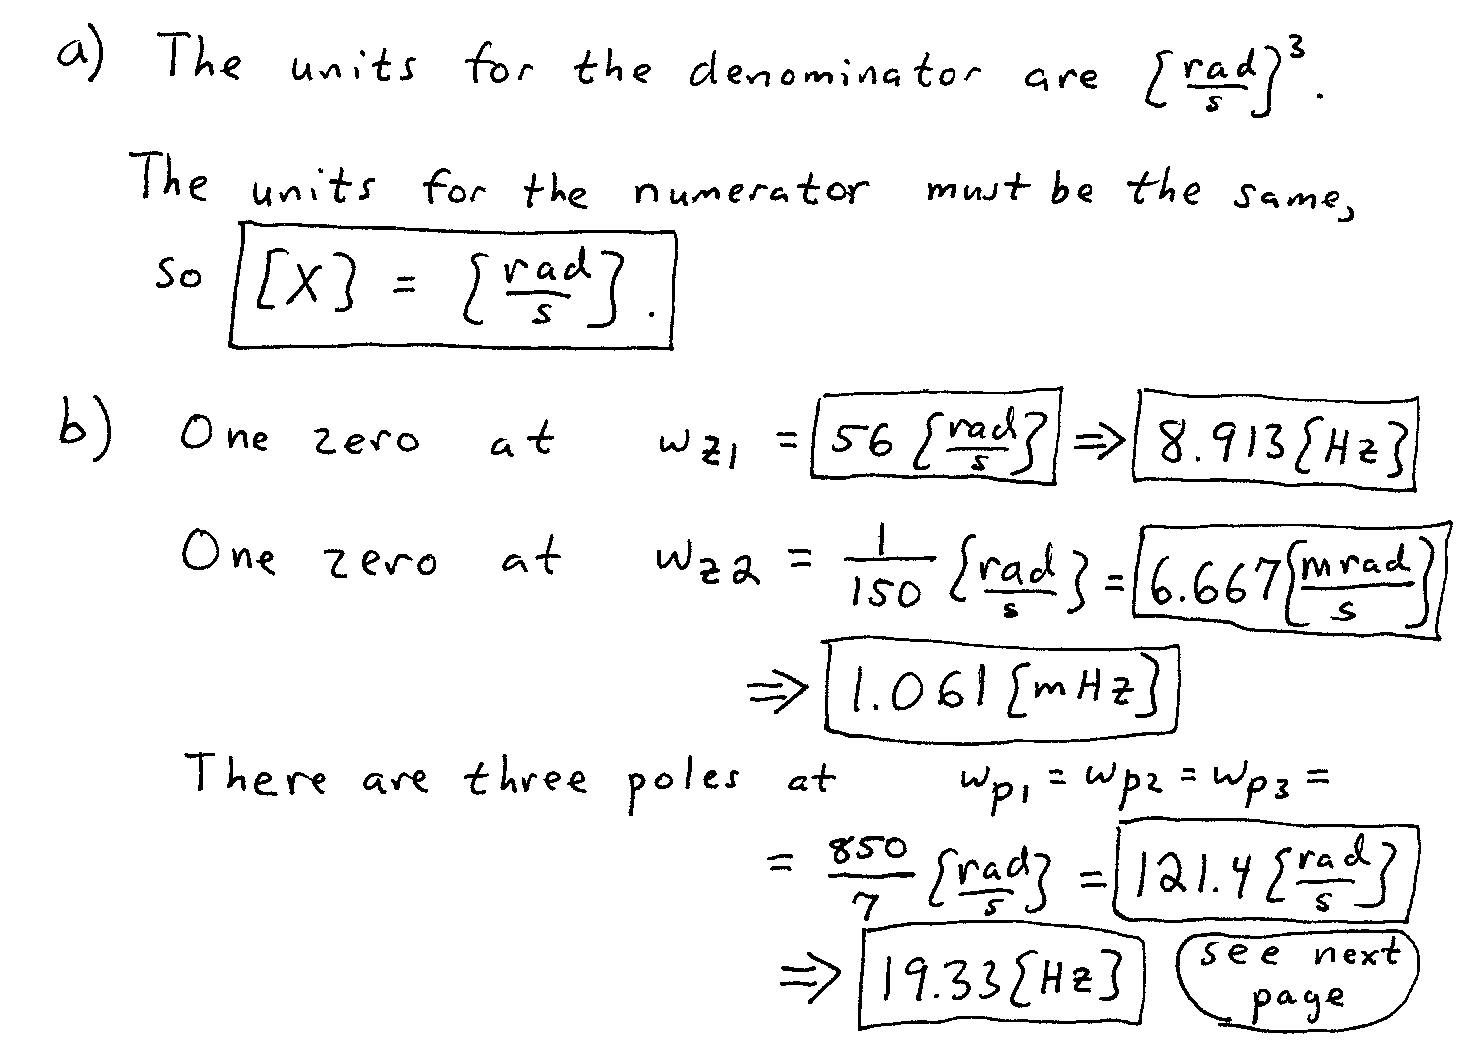 a) The units for the denominator are [rad/s]³.
The units for the numerator must be the same,
so [X] = [rad/s].
b) One zero at ωz1 = 56 [rad/s] ⇒ 8.913 [Hz]
One zero at ωz2 = 1/150 [rad/s] = 6.667 [mrad/s]
⇒ 1.061 [mHz]
There are three poles at ωp1 = ωp2 = ωp3 =
= 850/7 [rad/s] = 121.4 [rad/s]
⇒ 19.33 [Hz] see next
page